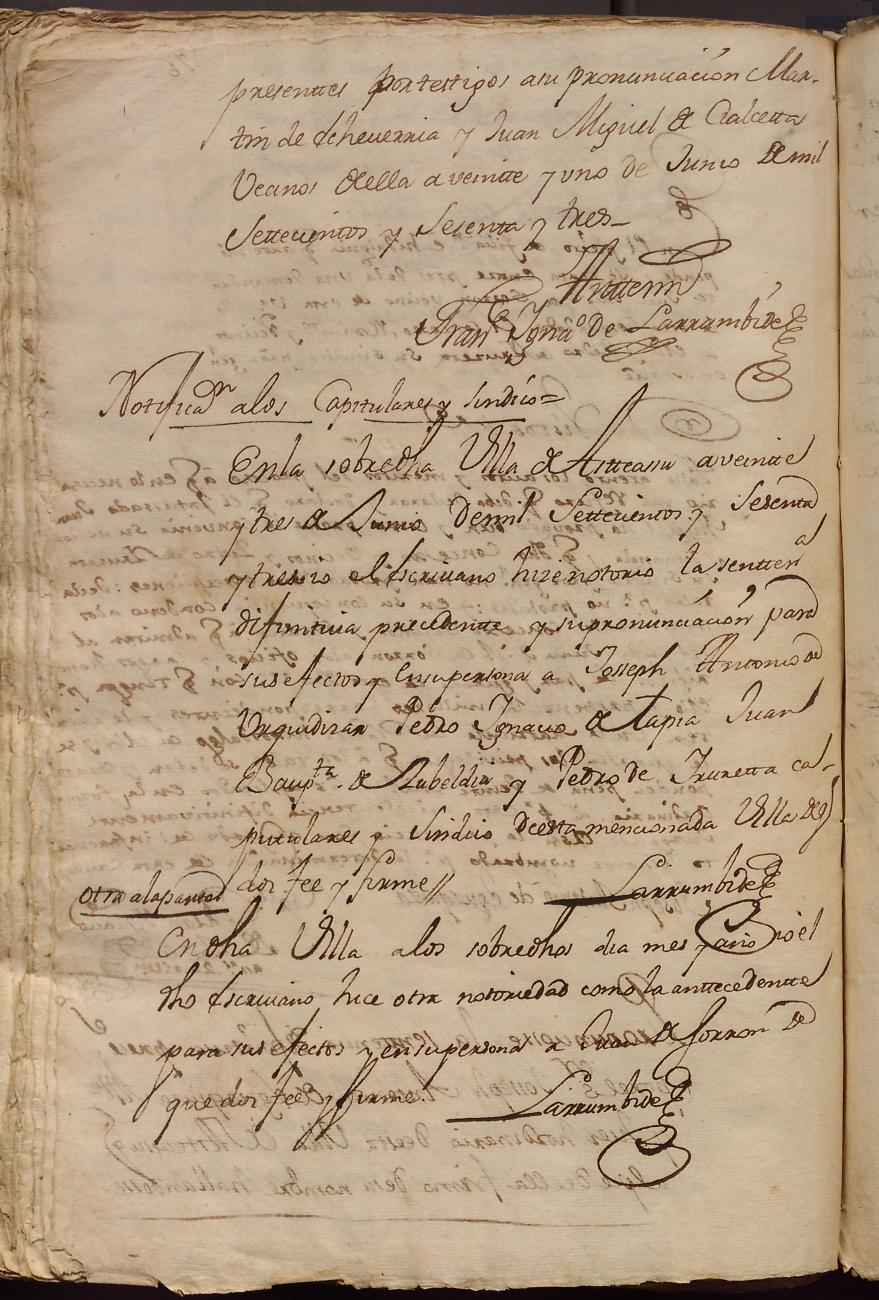 presenttes por testigos asu pronunciación Mar-
tin de Echeverria y Juan Miguel de Calcetta
Vecinos de ella a veintte y uno de Junio de mil
Settecientos y Sesenta y tres_
Antte mi
Fran.co Igna.o de Larrumbide
Notificaz.n alos Capitulares y Sindico=
En la sobredha Villa de Astteasu a veintte
y tres de Junio de mil Settecientos y Sesenta
y tres yo el Escrivano hize notorio la sentten.a
difinitiva precedentte y su pronunciación para
sus efectos y en su persona a Josseph Antonio de
Urquidizar Pedro Ignacio de Tapia Juan
Baup.ta de Zubeldia y Pedro de Iruretta ca-
pitulares y Sindico de esta mencionada Villa de q
doi fee y firme//
Larrumbide
Otra ala partte
En dha Villa a los sobredhos dia mes y año yo el
dho Escrivano hice otra notoriedad como la anttecedentte
para sus efectos y en su persona a Juan de Sorron de
que doi fee y firme.
Larrumbide